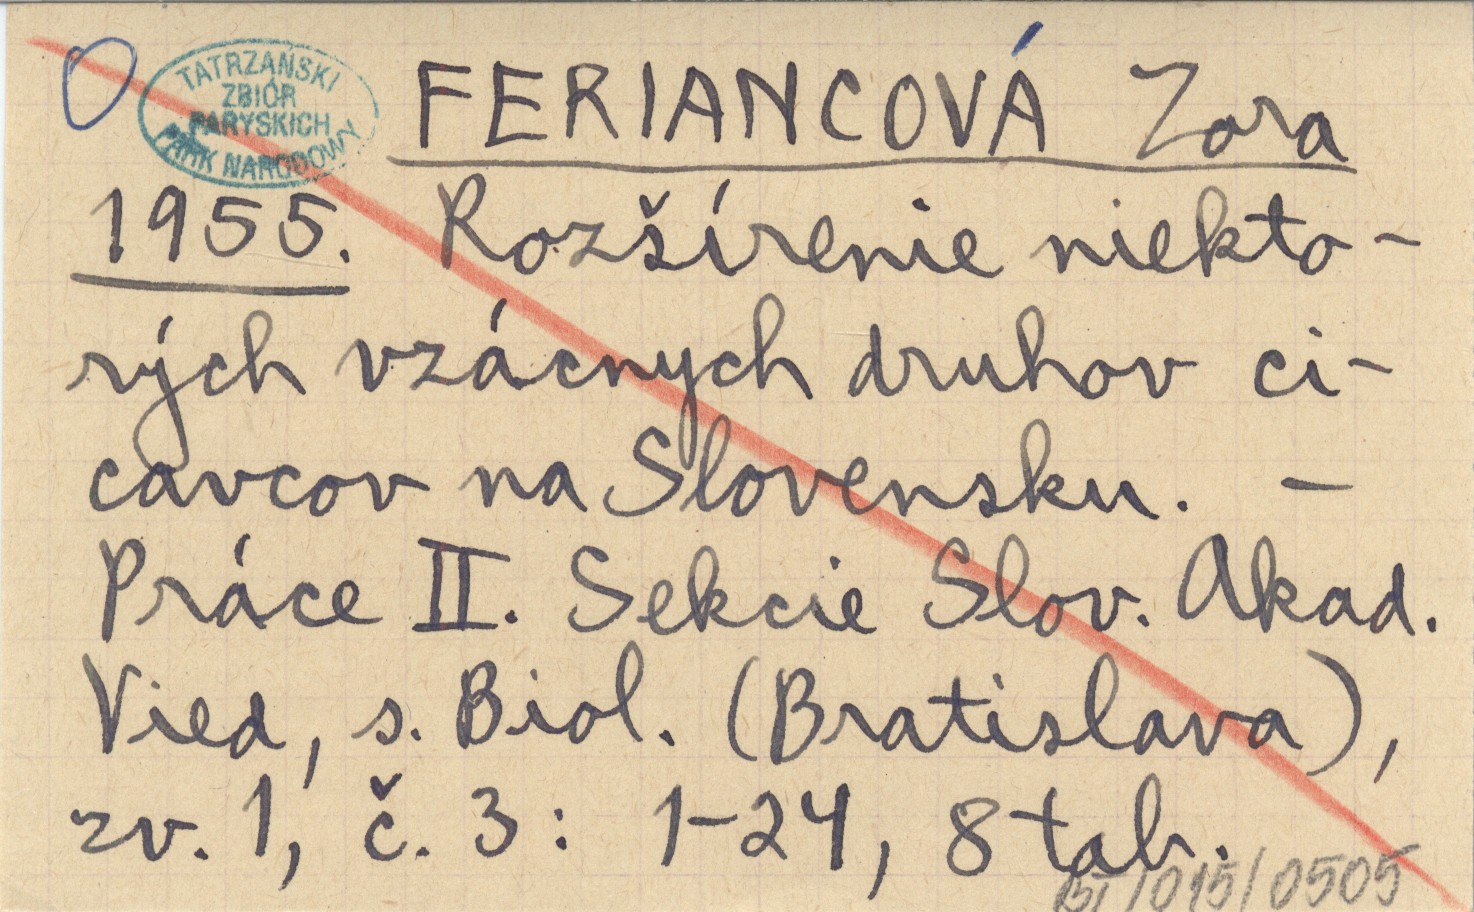 TATRZAŃSKI
ZBIÓR
PARYSKICH
PARK NARODOWY
FERIANCOVÁ Zora
1955. Rozšírenie niekto-
rých vzácnych druhov ci-
cavcov na Slovensku. —
Práce II. Sekcie Slov. Akad.
Vied, s. Biol. (Bratislava),
zv. 1, č. 3: 1-24, 8 tab.
/015/0505